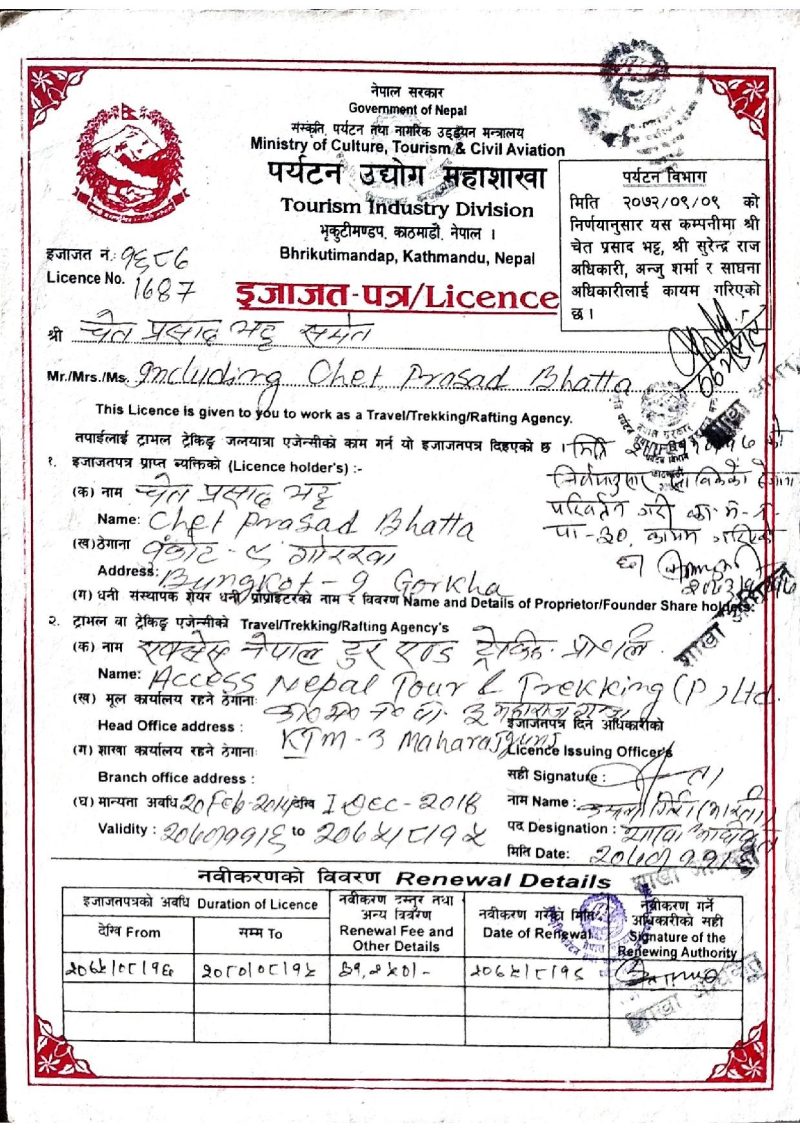 नेपाल सरकार
Government of Nepal
संस्कृति, पर्यटन तथा नागरिक उड्डयन मन्त्रालय
Ministry of Culture, Tourism & Civil Aviation
पर्यटन उद्योग महाशाखा
Tourism Industry Division
भृकुटीमण्डप, काठमाडौं, नेपाल ।
Bhrikutimandap, Kathmandu, Nepal
पर्यटन विभाग
मिति २०७२/०९/०९ को
निर्णयानुसार यस कम्पनीमा श्री
चेत प्रसाद भट्ट, श्री सुरेन्द्र राज
अधिकारी, अन्जु शर्मा र साधना
अधिकारीलाई कायम गरिएको
छ ।
इजाजत नं.: १६८७
Licence No. 1687
इजाजत-पत्र/Licence
श्री चेत प्रसाद भट्ट समेत
Mr./Mrs./Ms. Including Chet Prasad Bhatta
This Licence is given to you to work as a Travel/Trekking/Rafting Agency.
तपाईलाई ट्राभल ट्रेकिङ्ग जलयात्रा एजेन्सीको काम गर्न यो इजाजतपत्र दिइएको छ ।
मिति
१. इजाजतपत्र प्राप्त ब्यक्तिको (Licence holder's) :-
निर्णयानुसार
(क) नाम चेत प्रसाद भट्ट
परिवर्तन गरी का.म.न.
Name: Chet Prasad Bhatta
पा-३०, कायम गरिएको
छ।
(ख) ठेगाना बुंकोट - ९ गोरखा
Address: Bungkot - 9 Gorkha
(ग) धनी संस्थापक शेयर धनी प्रोप्राइटरको नाम र विवरण Name and Details of Proprietor/Founder Share holders:
२. ट्राभल वा ट्रेकिङ्ग एजेन्सीको Travel/Trekking/Rafting Agency's
(क) नाम एक्सेस नेपाल टुर एण्ड ट्रेकिङ प्रा.लि.
Name: Access Nepal Tour & Trekking (P) Ltd.
(ख) मूल कार्यालय रहने ठेगानाः का.म.न.पा. ३ महाराजगञ्ज
Head Office address : KTM - 3 Maharajgunj
(ग) शाखा कार्यालय रहने ठेगानाः
Branch office address :
(घ) मान्यता अवधि 20 Feb-2014 देखि 1 Dec - 2018
Validity : to २०७५।८।१५
इजाजतपत्र दिने अधिकारीको
Licence Issuing Officer's
सही Signature :
नाम Name :
पद Designation : शाखा अधिकृत
मिति Date:
शाखा अधिकृत
नवीकरणको विवरण Renewal Details
इजाजतपत्रको अवधि Duration of Licence
देखि From
सम्म To
नवीकरण दस्तुर तथा
अन्य विवरण
Renewal Fee and
Other Details
नवीकरण गरेको मिति
Date of Renewal
नवीकरण गर्ने
अधिकारीको सही
Signature of the
Renewing Authority
२०७५।०८।१६
२०८०।०८।१५
२०७५।८।१९
शाखा अधिकृत